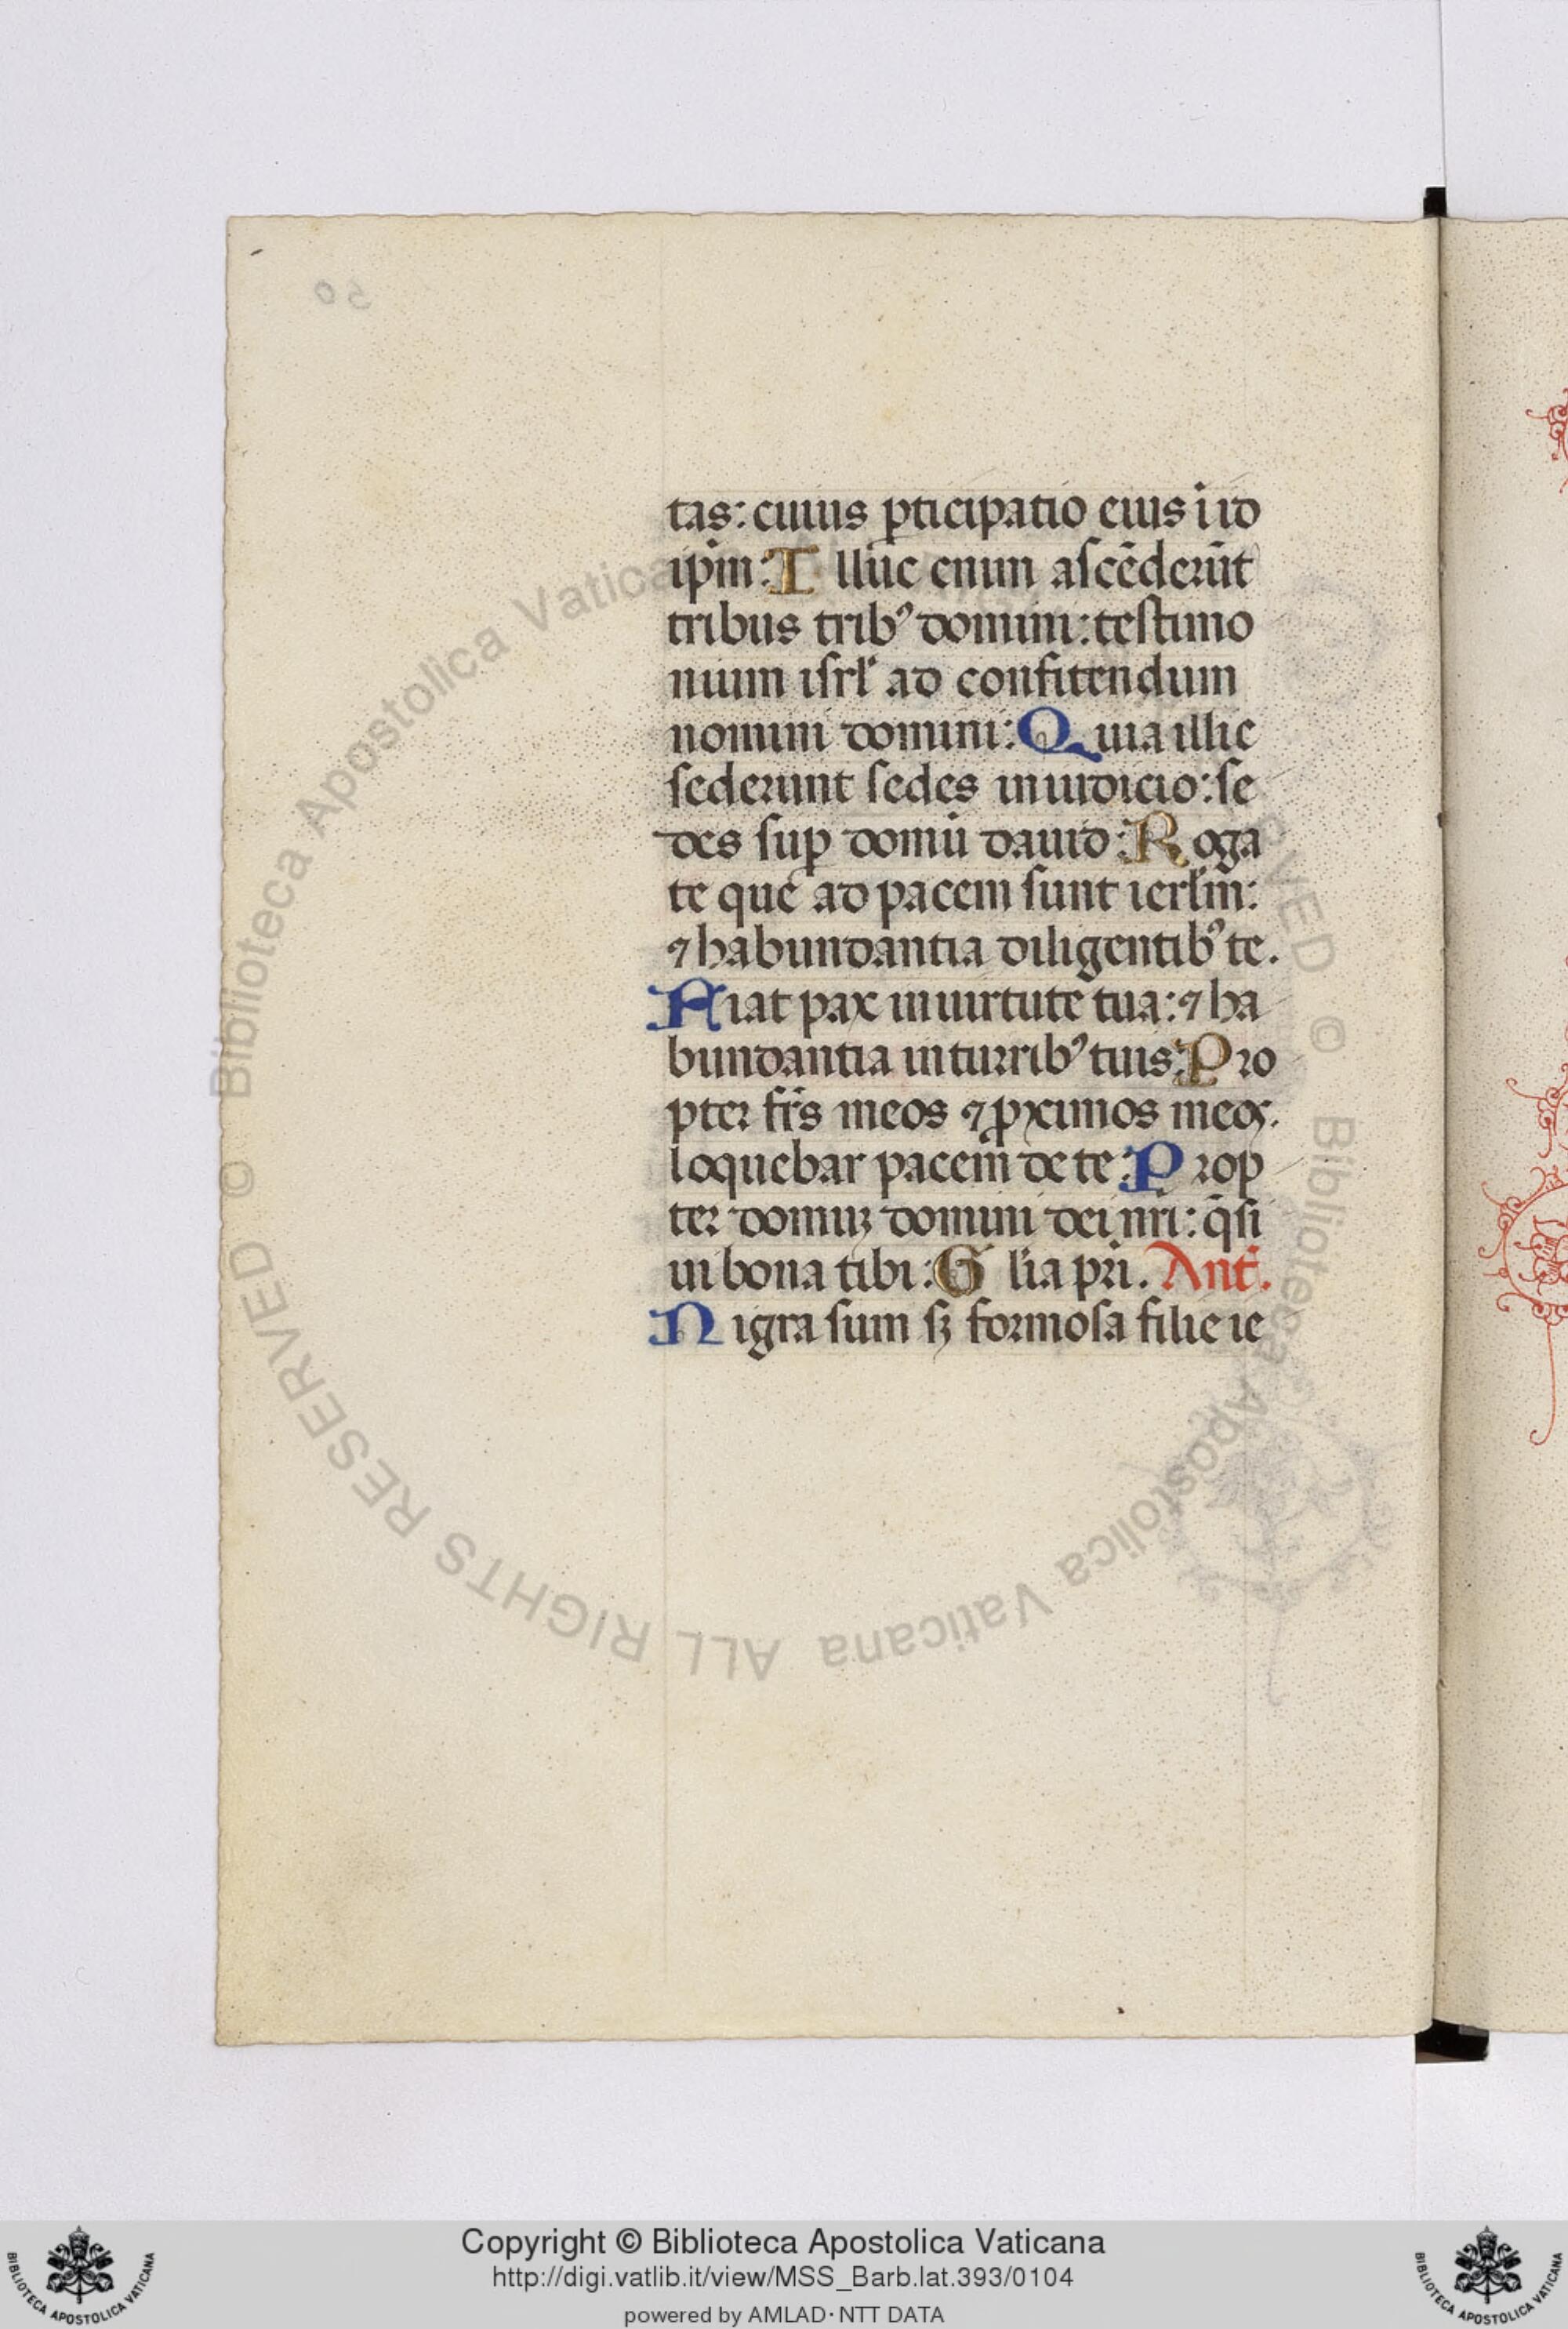 tas: cuius ꝑticipatio eius i id
ip̄m: Illuc enim ascēderūt
tribus tribꝰ domini: testimo
nium isrl̓ ad confitendum
nomini domini: Quia illic
sederunt sedes in iudicio: se
des suꝑ domū dauid: Roga
te que ad pacem sunt ierl̓m:
⁊ habundantia diligentibꝰ te.
Fiat pax in uirtute tua: ⁊ ha
bundantia in turribꝰ tuis: Pro
pter fr̄s meos ⁊ ꝓximos meos.
loquebar pacem de te: Prop
ter domuꝫ domini dei nr̄i: q̄si
ui bona tibi: Gl̓ia pr̄i. Ant̄.
Nigra sum sꝫ formosa filie ie
50
Biblioteca Apostolica Vaticana ALL RIGHTS RESERVED © Biblioteca Apostolica Vatica
RVED ©
Copyright © Biblioteca Apostolica Vaticana
http://digi.vatlib.it/view/MSS_Barb.lat.393/0104
powered by AMLAD·NTT DATA
BIBLIOTECA APOSTOLICA VATICANA
BIBLIOTECA APOSTOLICA VATICANA